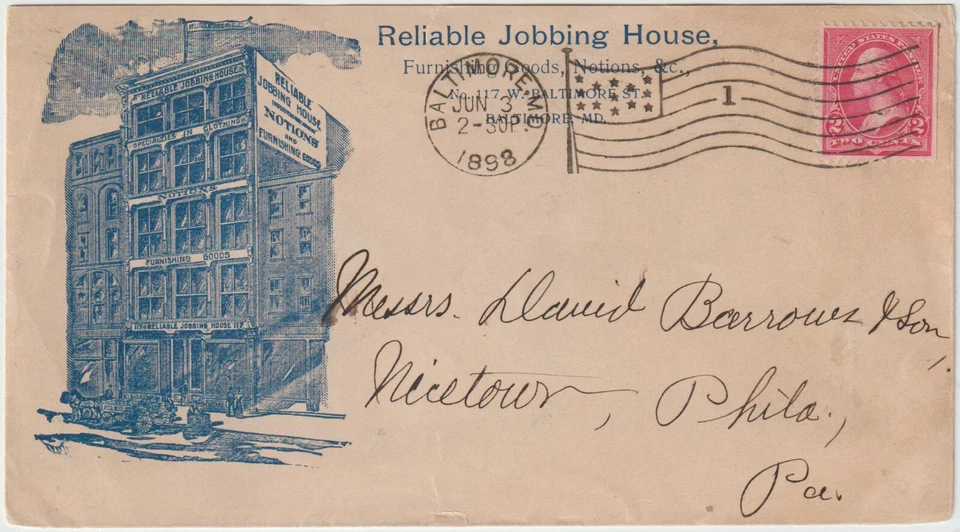 Reliable Jobbing House,
Furnishing Goods, Notions, &c.,
No. 117 W. BALTIMORE ST.
BALTIMORE, MD.
BALTIMORE, MD.
JUN 3
2-30P.
1898
1
UNITED STATES POSTAGE
2 2
TWO CENTS
RELIABLE JOBBING HOUSE
SPECIALTIES IN CLOTHING
NOTIONS
FURNISHING GOODS
117 RELIABLE JOBBING HOUSE 117
RELIABLE
JOBBING HOUSE
NOTIONS
AND
FURNISHING GOODS
Messrs. David Barrows & Son,
Nicetown, Phila.,
Pa.